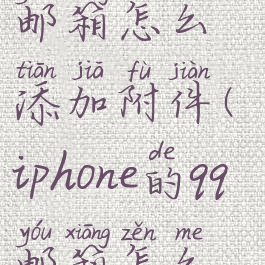 邮箱怎么
tiān jiā fù jiàn
添加附件(
de
iphone的qq
yóu xiāng zěn me
邮箱怎么